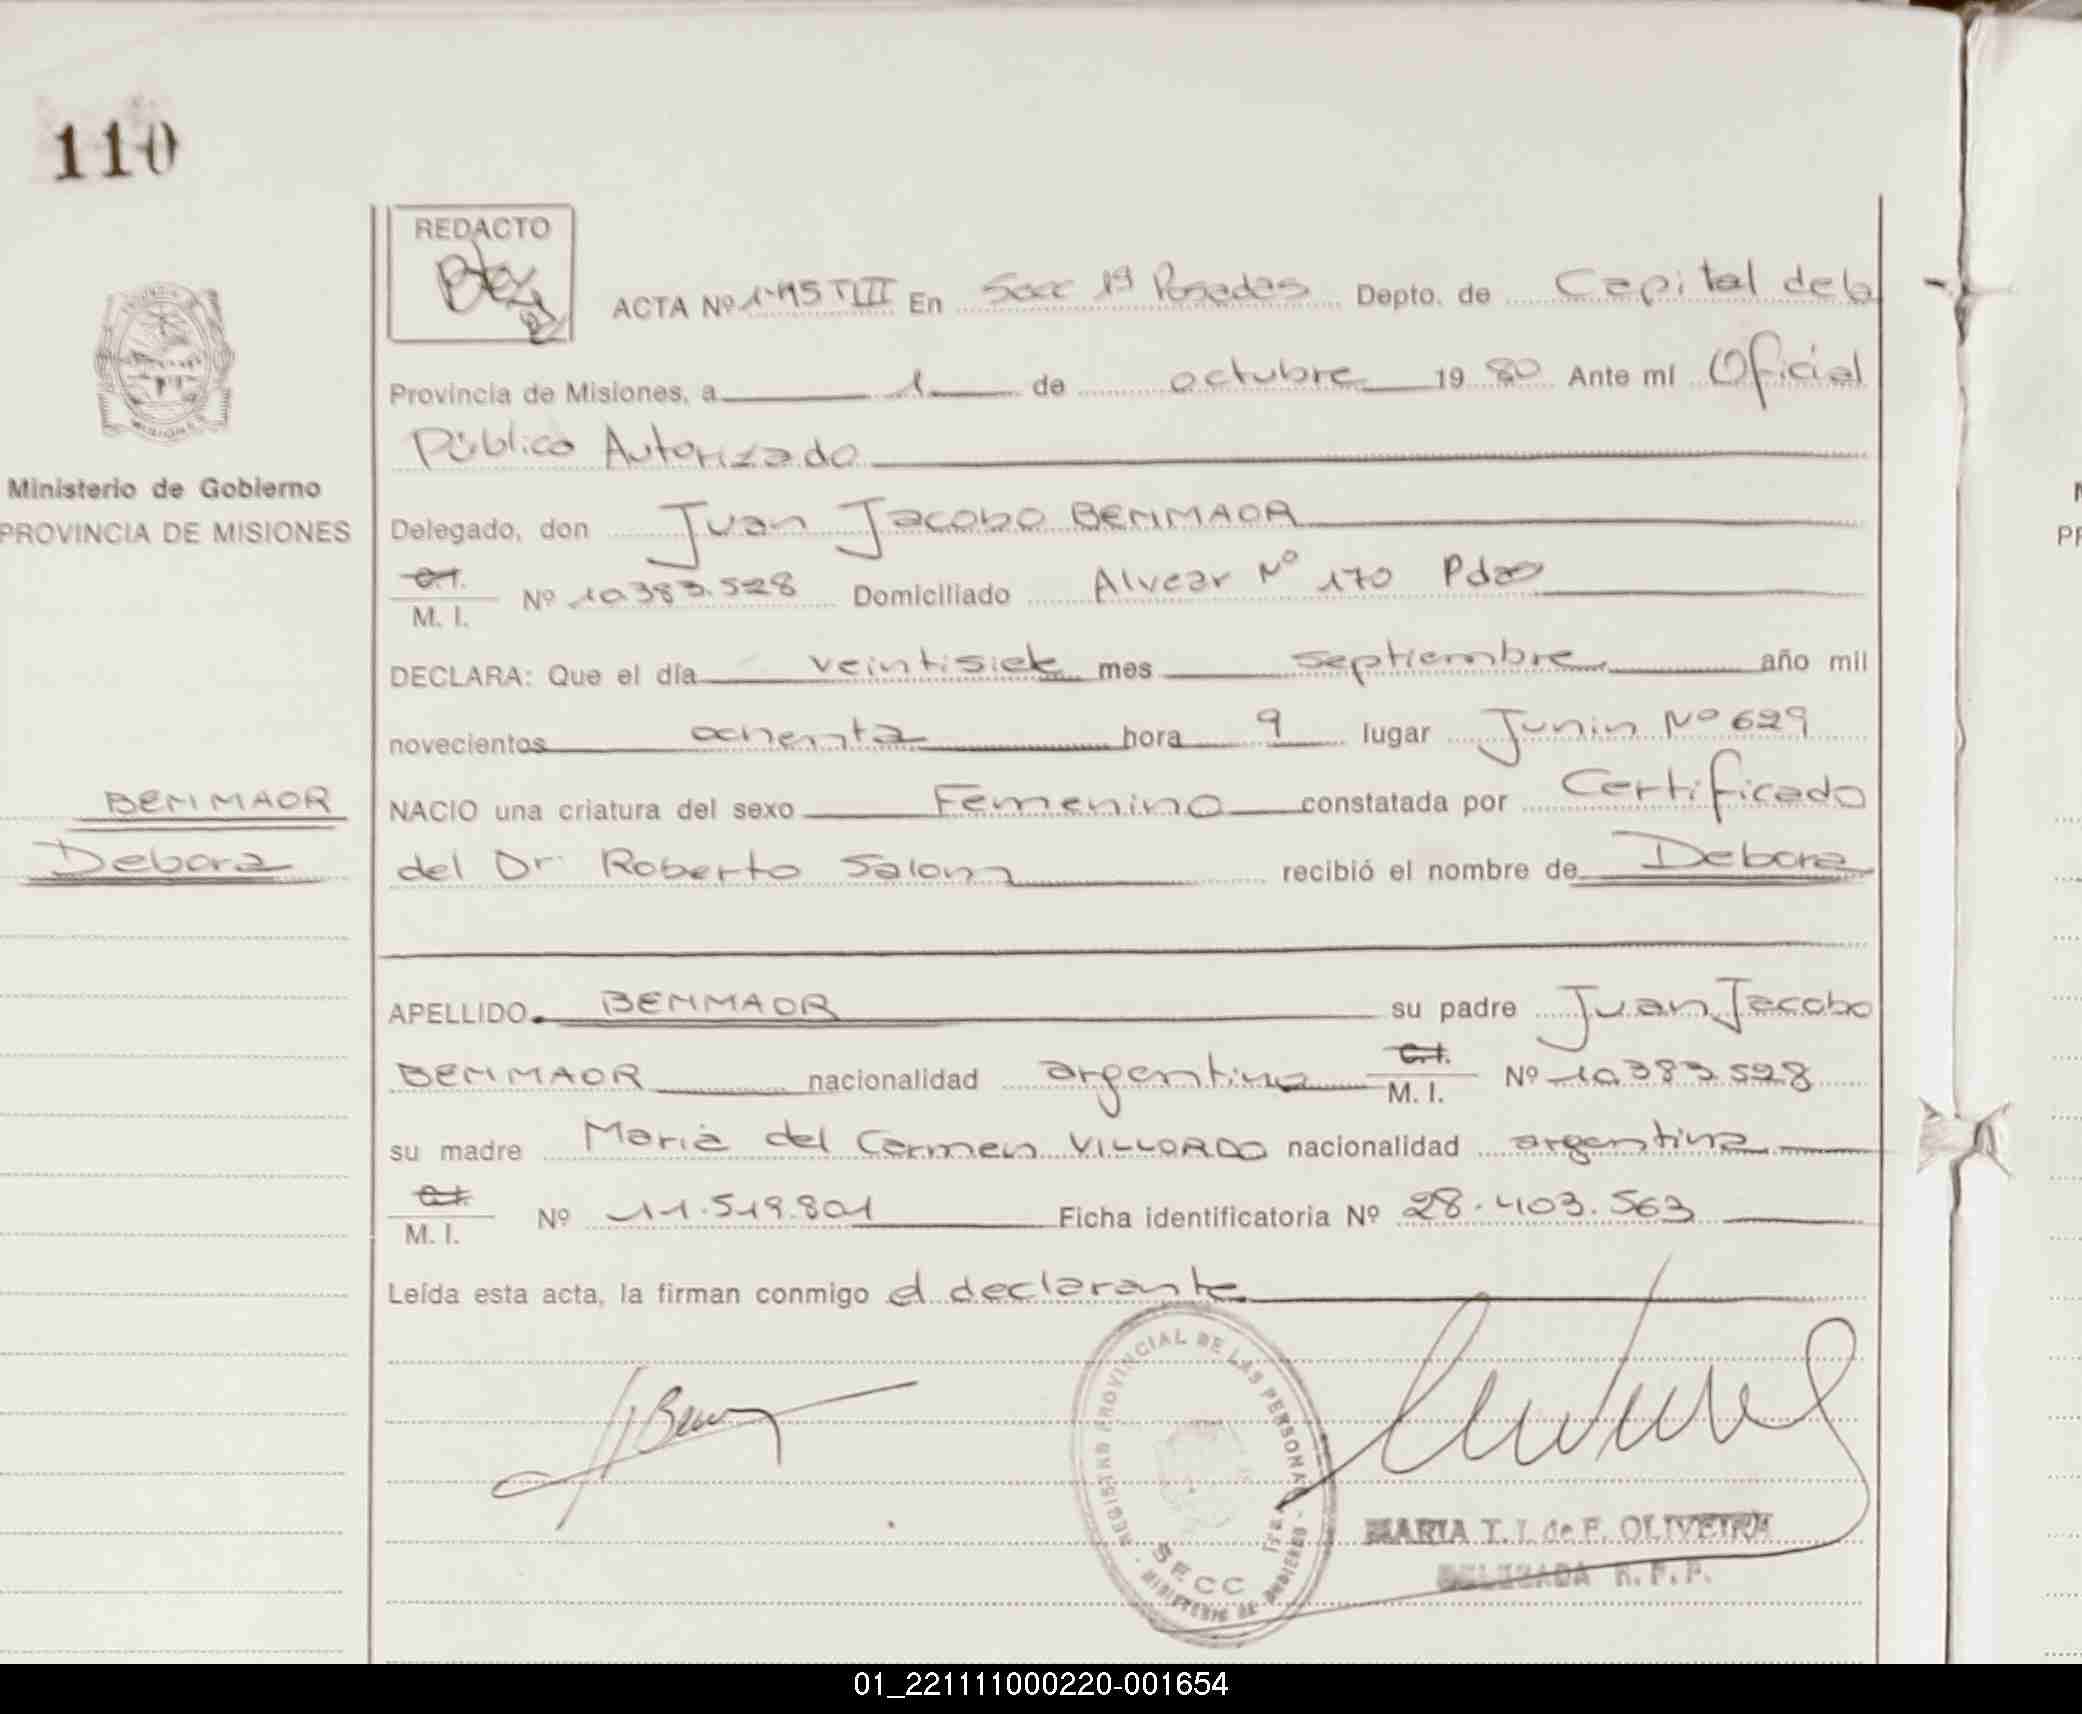 110
REDACTO
ACTA Nº En Secc 1ª Posadas Depto. de Capital de la
Provincia de Misiones, a 1 de octubre 1980 Ante mí Oficial
Público Autorizado
Ministerio de Gobierno
PROVINCIA DE MISIONES
Delegado, don Juan Jacobo BEMMAOR
C.I.
M. I. Nº 10.383.528 Domiciliado Alvear Nº 170 Pdas
DECLARA: Que el día veintisiete mes septiembre año mil
novecientos ochenta hora 9 lugar Junin Nº 629
BEMMAOR
Debora
NACIO una criatura del sexo Femenino constatada por Certificado
del Dr. Roberto Salom recibió el nombre de Debora
APELLIDO BEMMAOR su padre Juan Jacobo
BEMMAOR nacionalidad argentina C.I. M. I. Nº 10.383.528
su madre Maria del Carmen VILLORDO nacionalidad argentina
C.I.
M. I. Nº 11.519.801 Ficha identificatoria Nº 28.403.563
Leída esta acta, la firman conmigo el declarante
REGISTRO PROVINCIAL DE LAS PERSONAS
SECC
MINISTERIO DE GOBIERNO
MARIA T. I. de F. OLIVEIRA
DELEGADA R. P. P.
01_221111000220-001654